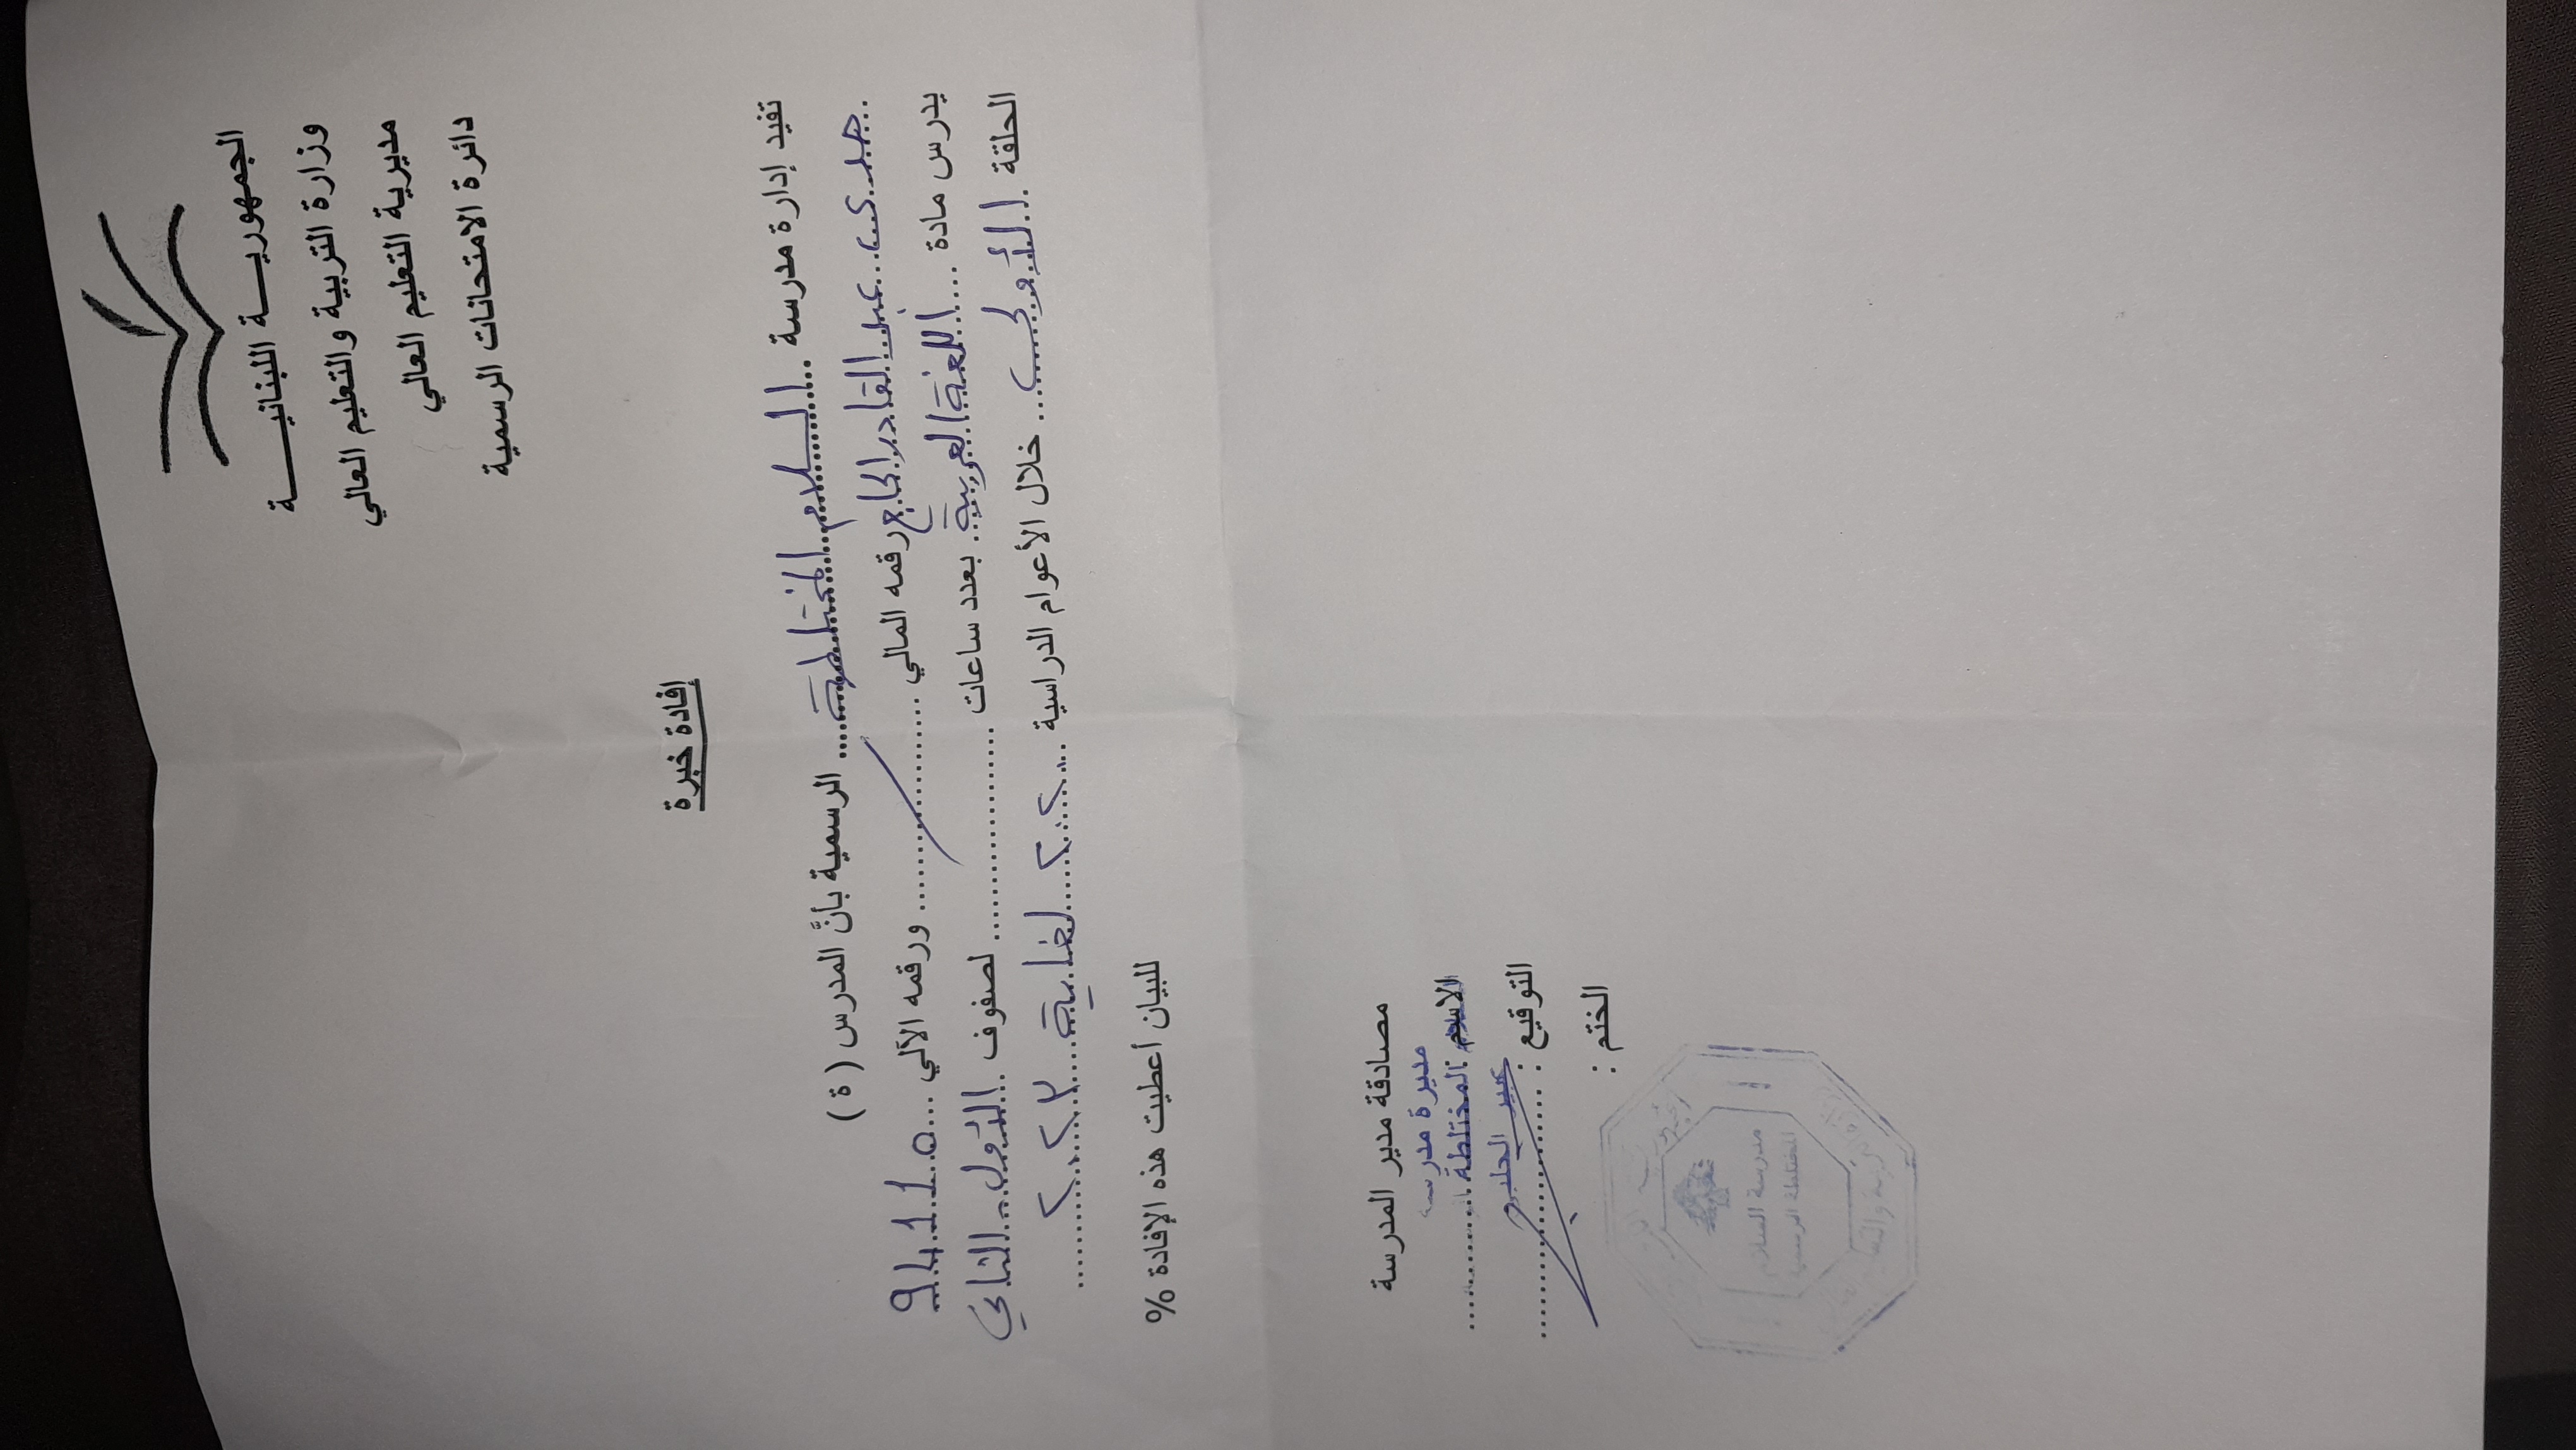 الجمهوريـــة اللبنانيـــــة
وزارة التربية والتعليم العالي
مديرية التعليم العالي
دائرة الامتحانات الرسمية
إفادة خبرة
تفيد إدارة مدرسة ..السلام المختلطة.. الرسمية بأنَّ المدرس ( ة )
هدى عبد القادر الحاج رقمه المالي .......... ورقمه الآلي ...
يدرس مادة ....اللغة العربية.. بعدد ساعات .................... لصفوف ..الأول - الثاني
الحلقة ..الأولى.... خلال الأعوام الدراسية ....٢٠٢٠....لغاية
....٢٠٢٢
للبيان أعطيت هذه الإفادة %
مصادقة مدير المدرسة
مديرة مدرسة
الاسم : المختلطة
عبير الحلبي
التوقيع : ....................
الختم :
مدرسة السلام
المختلطة الرسمية